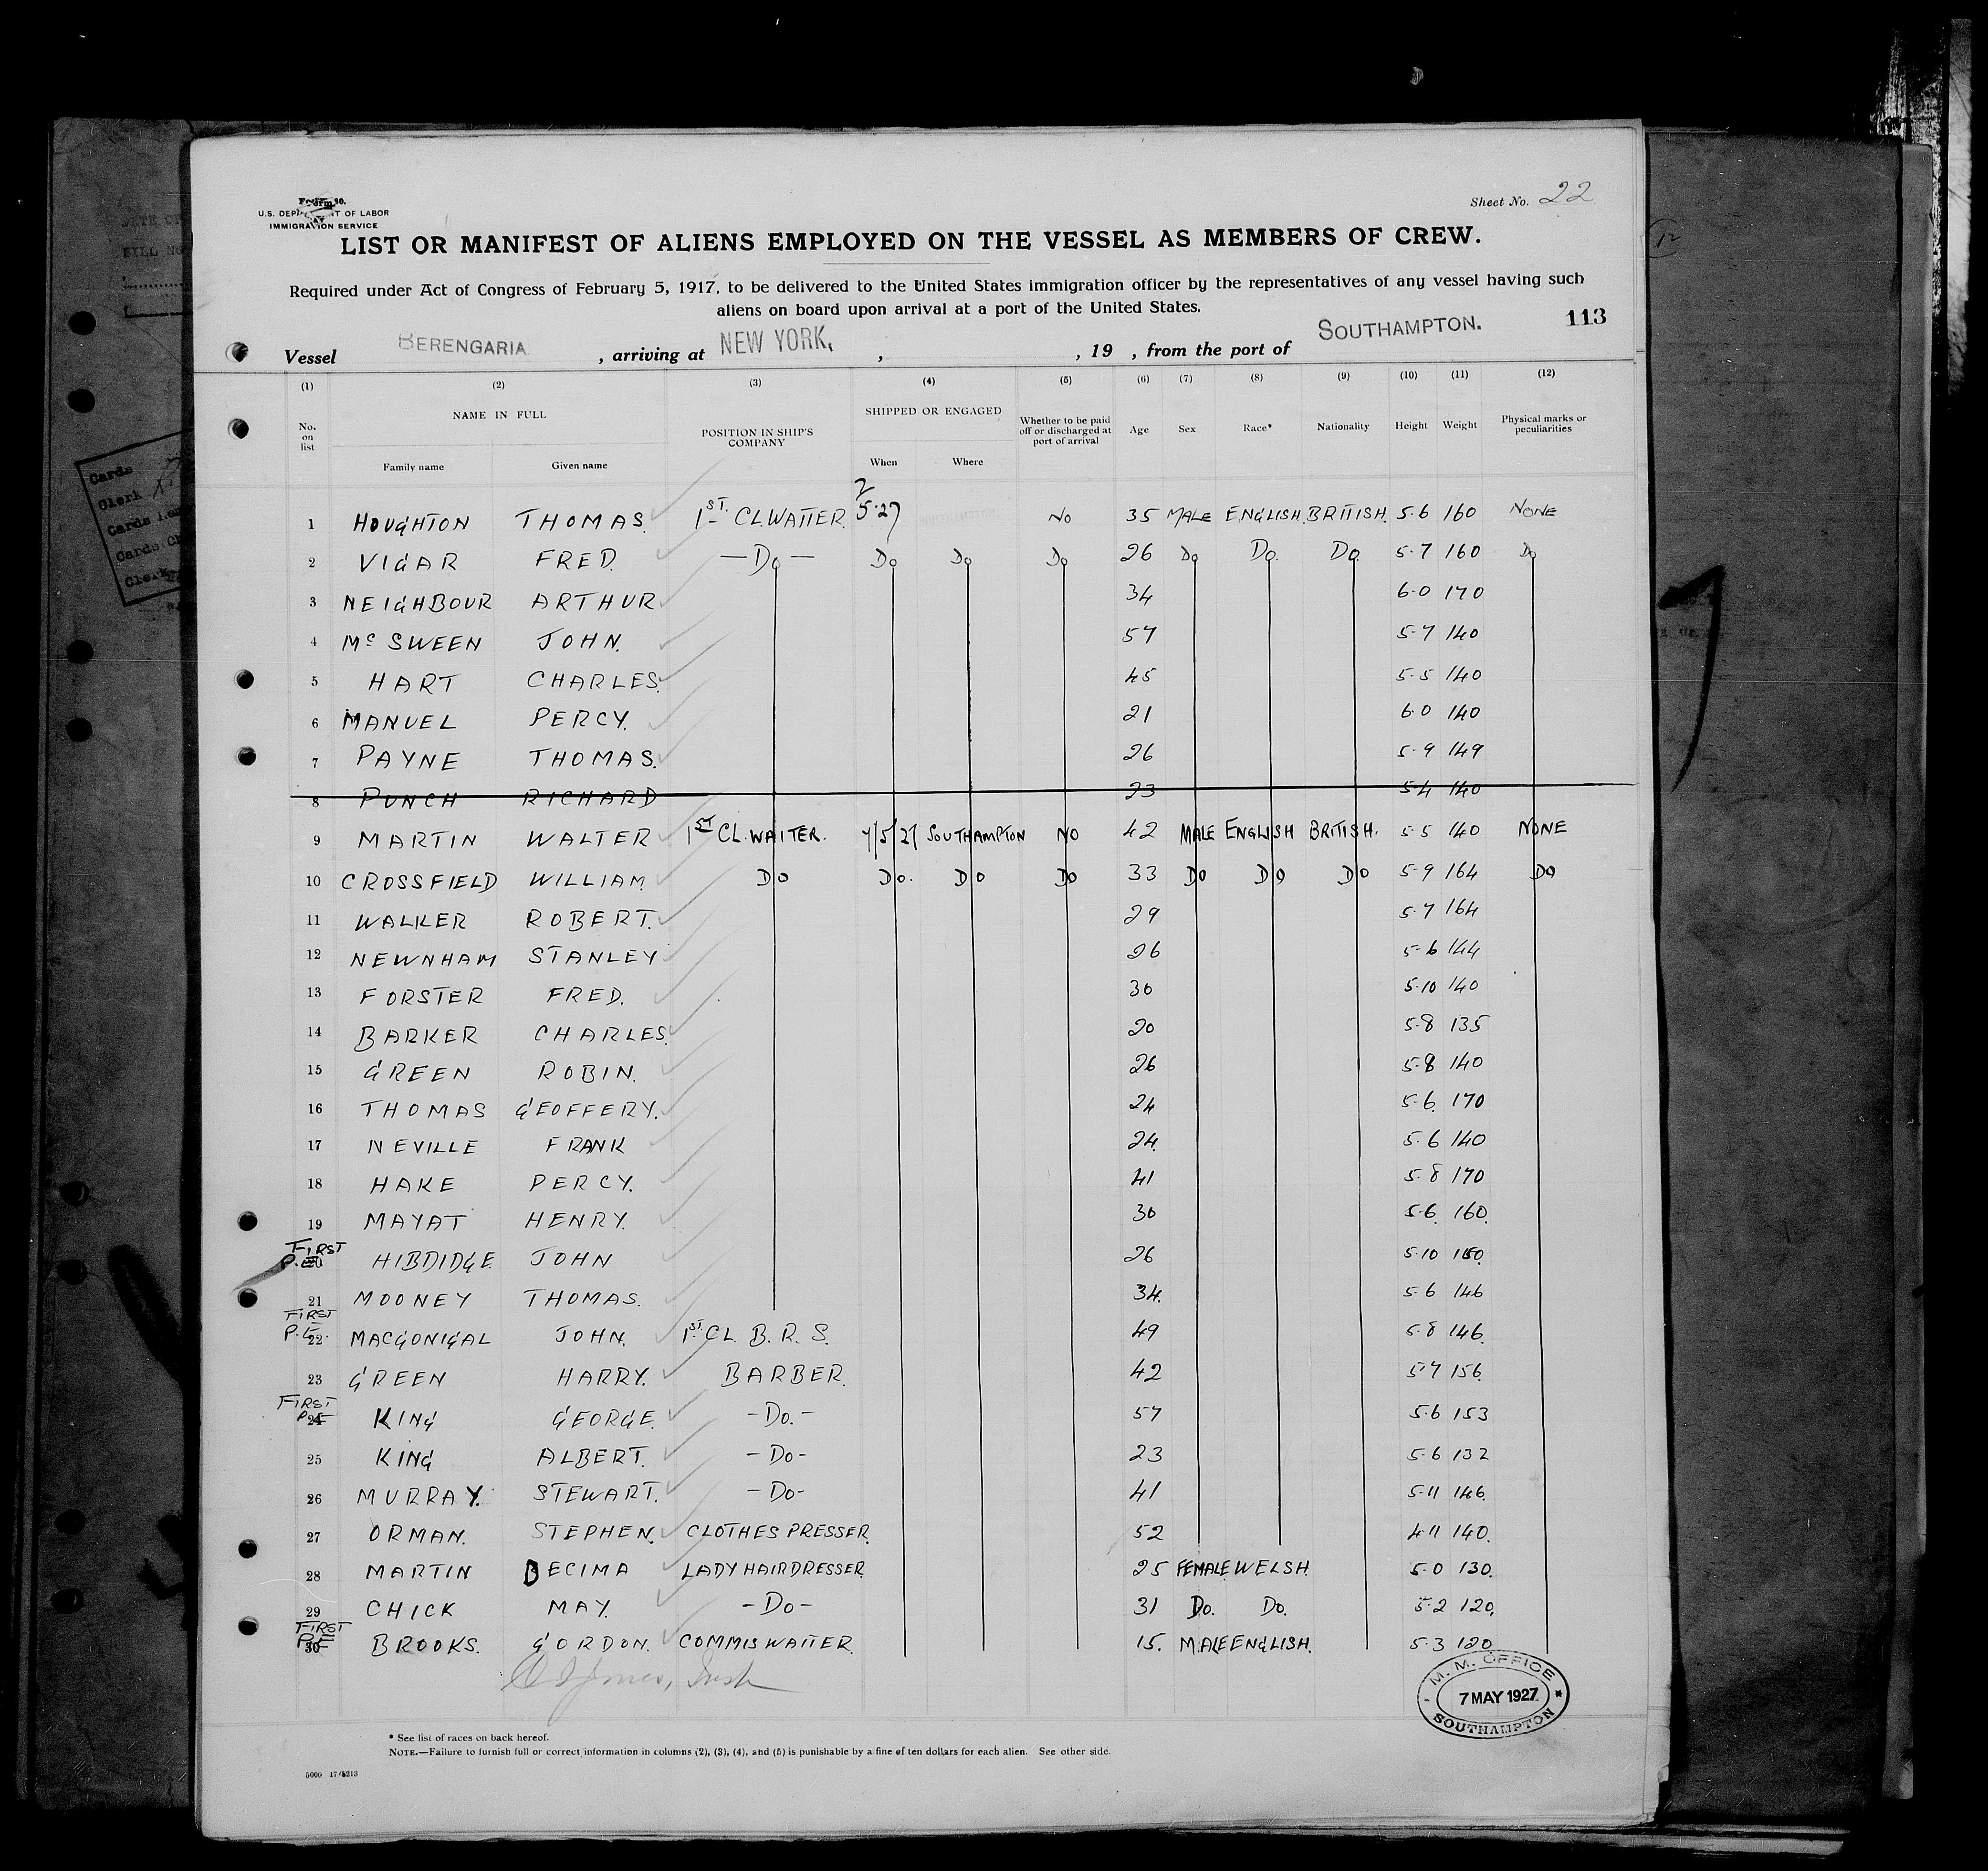 Sheet No. 22
U.S. DEPARTMENT OF LABOR
IMMIGRATION SERVICE
LIST OR MANIFEST OF ALIENS EMPLOYED ON THE VESSEL AS MEMBERS OF CREW.
Required under Act of Congress of February 5, 1917, to be delivered to the United States immigration officer by the representatives of any vessel having such
aliens on board upon arrival at a port of the United States.
113
Vessel BERENGARIA , arriving at NEW YORK, , , 19 , from the port of SOUTHAMPTON.
(1) (2) (3) (4) (5) (6) (7) (8) (9) (10) (11) (12)
No. on list NAME IN FULL Family name Given name POSITION IN SHIP'S COMPANY SHIPPED OR ENGAGED When Where Whether to be paid off or discharged at port of arrival Age Sex Race* Nationality Height Weight Physical marks or peculiarities
1 HOUGHTON THOMAS. 1ST. CL WAITER. 5·27 SOUTHAMPTON. NO 35 MALE ENGLISH. BRITISH. 5·6 160 NONE
2 VIGAR FRED. — Do — Do Do Do 26 Do Do. Do. 5·7 160 Do
3 NEIGHBOUR ARTHUR. 34 6·0 170
4 Mc SWEEN JOHN. 57 5·7 140
5 HART CHARLES. 45 5·5 140
6 MANUEL PERCY. 21 6·0 140
7 PAYNE THOMAS. 26 5·9 149
8 PUNCH RICHARD 23 5·4 140
9 MARTIN WALTER 1ST CL. WAITER. 7/5/27 SOUTHAMPTON NO 42 MALE ENGLISH BRITISH. 5·5 140 NONE
10 CROSSFIELD WILLIAM Do Do. Do Do 33 Do Do Do 5·9 164 Do
11 WALKER ROBERT. 29 5·7 164
12 NEWNHAM STANLEY 26 5·6 144
13 FORSTER FRED. 30 5·10 140
14 BARKER CHARLES. 20 5·8 135
15 GREEN ROBIN. 26 5·8 140
16 THOMAS GEOFFERY. 24 5·6. 170
17 NEVILLE FRANK 24. 5·6 140
18 HAKE PERCY. 41 5·8 170
19 MAYAT HENRY. 30 5·6. 160.
FIRST
P.E. 20 HIBDIDGE JOHN 26 5·10 160.
21 MOONEY THOMAS. 34. 5·6 146
FIRST
P.E. 22 MACGONIGAL JOHN. 1ST. CL. B. R. S. 49 5·8 146.
23 GREEN HARRY. BARBER. 42 5·7 156.
FIRST
P.E. 24 KING GEORGE. - Do. - 57 5·6 153
25 KING ALBERT. - Do - 23 5·6 132
26 MURRAY. STEWART. - Do - 41 5·11 146.
27 ORMAN. STEPHEN. CLOTHES PRESSER. 52 4·11 140.
28 MARTIN DECIMA LADY HAIRDRESSER. 25 FEMALE WELSH. 5·0 130.
29 CHICK MAY. - Do - 31 Do. Do. 5·2 120.
FIRST
P.E. 30 BROOKS. GORDON. COMMIS WAITER. 15. MALE ENGLISH. 5·3 120
M. M. OFFICE
7 MAY 1927
SOUTHAMPTON
* See list of races on back hereof.
NOTE.—Failure to furnish full or correct information in columns (2), (3), (4), and (5) is punishable by a fine of ten dollars for each alien. See other side.